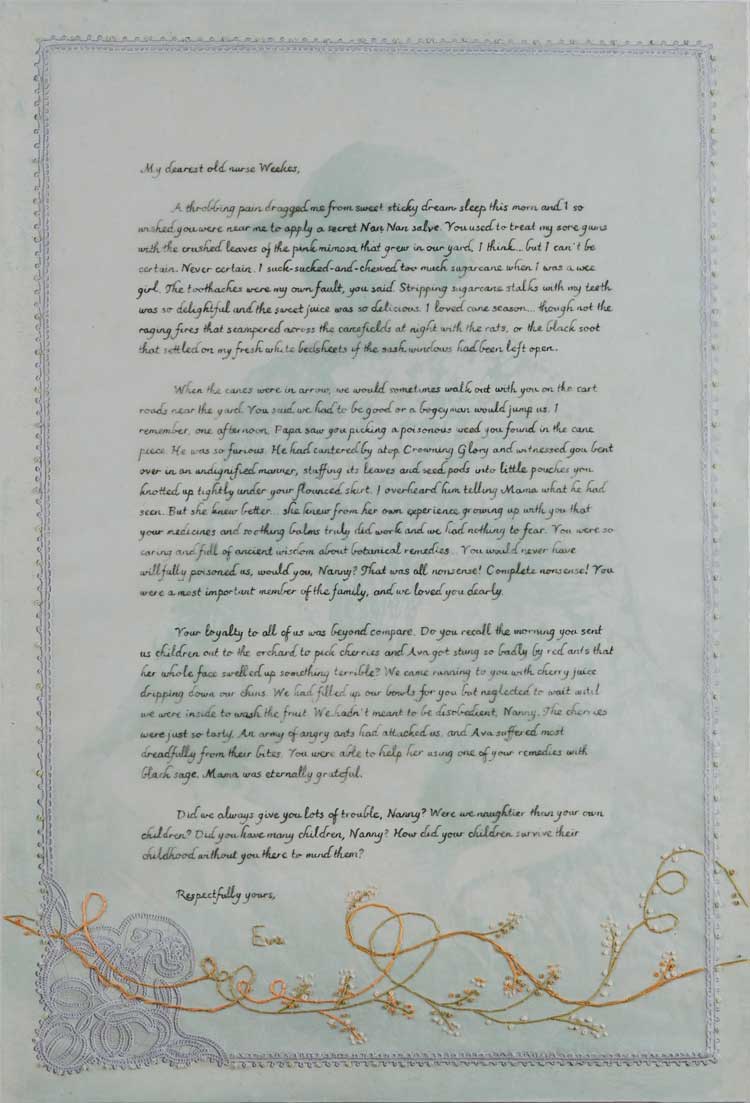 My dearest old nurse Weekes,
A throbbing pain dragged me from sweet sticky dream-sleep this morn and I so
wished you were near me to apply a secret Nan Nan salve. You used to treat my sore gums
with the crushed leaves of the pink mimosa that grew in our yard, I think... but I can't be
certain. Never certain. I suck-sucked-and-chewed too much sugarcane when I was a wee
girl. The toothaches were my own fault, you said. Stripping sugarcane stalks with my teeth
was so delightful and the sweet juice was so delicious. I loved cane season... though not the
raging fires that scampered across the canefields at night with the rats, or the black soot
that settled on my fresh white bedsheets if the sash windows had been left open.
When the canes were in arrow, we would sometimes walk out with you on the cart
roads near the yard. You said we had to be good or a bogeyman would jump us. I
remember, one afternoon, Papa saw you picking a poisonous weed you found in the cane
piece. He was so furious. He had cantered by atop Crowning Glory and witnessed you bent
over in an undignified manner, stuffing its leaves and seed pods into little pouches you
knotted up tightly under your flounced skirt. I overheard him telling Mama what he had
seen. But she knew better... she knew from her own experience growing up with you that
your medicines and soothing balms truly did work and we had nothing to fear. You were so
caring and full of ancient wisdom about botanical remedies... You would never have
willfully poisoned us, would you, Nanny? That was all nonsense! Complete nonsense! You
were a most important member of the family, and we loved you dearly.
Your loyalty to all of us was beyond compare. Do you recall the morning you sent
us children out to the orchard to pick cherries and Ava got stung so badly by red ants that
her whole face swelled up something terrible? We came running to you with cherry juice
dripping down our chins. We had filled up our bowls for you but neglected to wait until
we were inside to wash the fruit. We hadn't meant to be disobedient, Nanny. The cherries
were just so tasty. An army of angry ants had attacked us, and Ava suffered most
dreadfully from their bites. You were able to help her using one of your remedies with
black sage. Mama was eternally grateful.
Did we always give you lots of trouble, Nanny? Were we naughtier than your own
children? Did you have many children, Nanny? How did your children survive their
childhood without you there to mind them?
Respectfully yours,
Eva